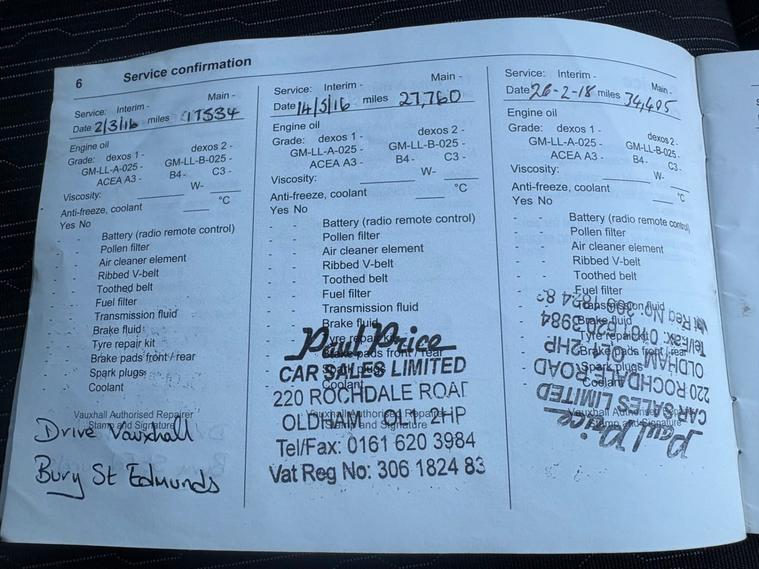 6 Service confirmation
Service: Interim - Main -
Date 2/3/16 miles 17334
Engine oil
Grade: dexos 1 - dexos 2 -
GM-LL-A-025 - GM-LL-B-025 -
ACEA A3 - B4- C3 -
Viscosity: W-
Anti-freeze, coolant °C
Yes No
- - Battery (radio remote control)
- - Pollen filter
- - Air cleaner element
- - Ribbed V-belt
- - Toothed belt
- - Fuel filter
- - Transmission fluid
- - Brake fluid
- - Tyre repair kit
- - Brake pads front / rear
- - Spark plugs
- - Coolant
Vauxhall Authorised Repairer
Stamp and Signature
Drive Vauxhall
Bury St Edmunds
Service: Interim - Main -
Date 14/5/16 miles 27,760
Engine oil
Grade: dexos 1 - dexos 2 -
GM-LL-A-025 - GM-LL-B-025 -
ACEA A3 - B4- C3 -
Viscosity: W-
Anti-freeze, coolant °C
Yes No
- - Battery (radio remote control)
- - Pollen filter
- - Air cleaner element
- - Ribbed V-belt
- - Toothed belt
- - Fuel filter
- - Transmission fluid
- - Brake fluid
Tyre repair kit
Brake pads front / rear
Spark plugs
Coolant
Vauxhall Authorised Repairer
Stamp and Signature
Paul Price
CAR SALES LIMITED
220 ROCHDALE ROAD
OLDHAM OL1 2HP
Tel/Fax: 0161 620 3984
Vat Reg No: 306 1824 83
Service: Interim - Main -
Date 26-2-18 miles 34,495
Engine oil
Grade: dexos 1 - dexos 2 -
GM-LL-A-025 - GM-LL-B-025 -
ACEA A3 - B4- C3 -
Viscosity: W-
Anti-freeze, coolant °C
Yes No
- - Battery (radio remote control)
- - Pollen filter
- - Air cleaner element
- - Ribbed V-belt
- - Toothed belt
- - Fuel filter
Transmission fluid
Brake fluid
Tyre repair kit
Brake pads front / rear
Spark plugs
Coolant
Vauxhall Authorised Repairer
Stamp and Signature
Paul Price
CAR SALES LIMITED
220 ROCHDALE ROAD
OLDHAM OL1 2HP
Tel/Fax: 0161 620 3984
Vat Reg No: 306 1824 83